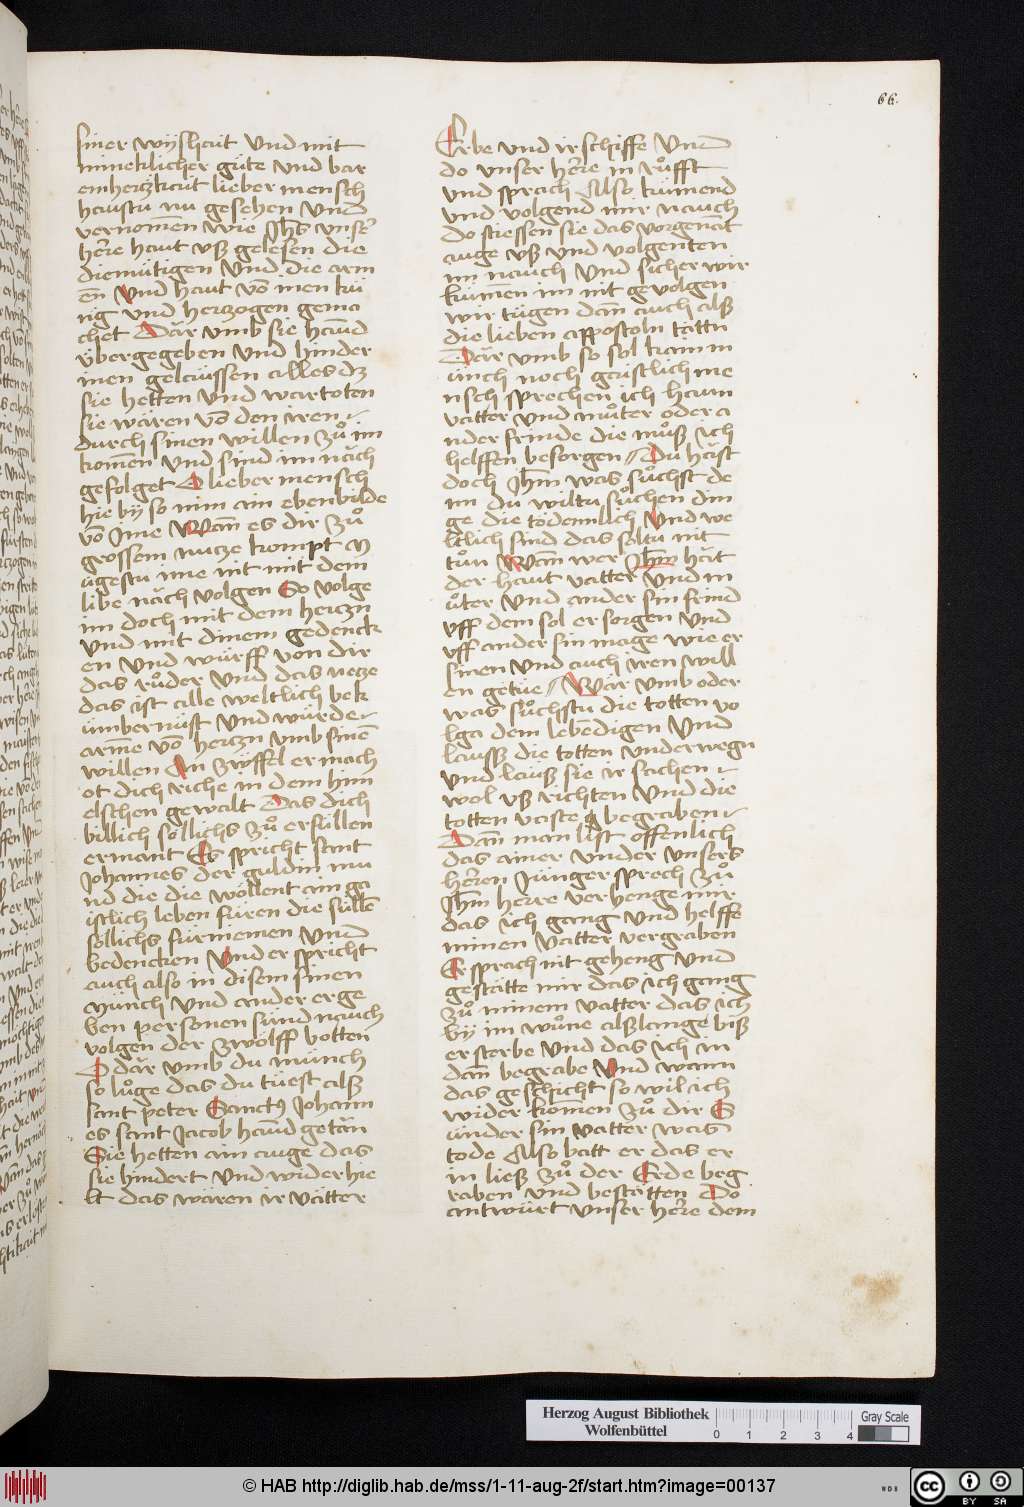 66.
siner wyßhait Vnd mit
minneklicher güte vnd bar
emhertzkait lieber mensch
haustu nu gesehen Vnd
vernomen wie Jhs vnser
herre haut vß gelesen die
diemütigen Vnd die arm
en Vnd haut vo inen kü
nig vnd hertzogen gema
chet Dar vmb sie hand
übergegeben Vnd hinder
inen gelaussen alles dz
sie hetten Vnd wartoten
sie wären vo den iren
durch sinen willen zů im
komen Vnd sind im näch
gefolget O lieber mensch
hie by so nim ain ebenbilde
vo Jme Wann es dir zů
grossem nutze kompt
ügestu ime nit mit dem
libe näch volgen So volge
im doch mit dem hertzn
vnd mit dinem gedenck
en Vnd würff von dir
das růder Vnd das netze
das ist alle weltlich bek
ümbernüst Vnd würde
arme vo hertzn vmb sine
willen On zwyffel er mach
ot dich riche in dem him
elschen gewalt Das dich
billich söllichs zů erfüllen
ermant Es spricht sant
Johannes der guldin mu
nd die die wöllent ain ga
istlich leben füren die sülle
söllichs fürniemen Vnd
bedencken Vnd er spricht
auch also in disem sinen
münch Vnd ander erge
ben personen sünd nauch
volgen der zwölff botten
O där vmb du münch
so lůge das du tüest alß
sant peter Sanctus Johann
es sant Jacob haund getän
Sie hetten ain auge das
sie hindert Vnd widerhie
lt das waren ir vätter
Erbe vnd ir schiffe Vnd
do vnser herre in růfft
vnd sprach Also kumend
vnd volgend mir nauch
do stiessen sie das vorgenat
auge vß vnd volgenten
im nauch Vnd sicher wir
kümen im nit gevolgen
wir tügen dan auch alß
die lieben appostoln tättn
Där vmb so sol kain m
ünch noch gaistlich me
nsch sprechen ich haun
vatter vnd můter oder a
nder frinde die můß ich
helffen besorgen Du häst
doch Jhm was sůchst de
nn du wiltu sůchen din
ge die tödemlich Vnd we
ltlich sind das soltu nit
tůn Wann wer Jhm hät
der haut vatter Vnd m
ůter Vnd ander sin frind
vff dem sol er sorgen Vnd
vff ander sin mage wie er
sinen Vnd auch iren will
en getüe Wär vmb oder
was sůchstu die totten vo
lga dem lebedigen Vnd
lausß die totten Vnderwegn
vnd lauß sie ir sachen
wol vß richten Vnd die
totten vaste begraben
Dann man list offenlich
das ainer vnder vnsers
herren Jünger sprech zů
Jhm herre verhenge mir
das ich gang Vnd helffe
minen Vatter vergraben
Er sprach nit geheng Vnd
gestätte mir das ich gang
zů minem vatter das ich
by im wůne alßlange biß
er sterbe Vnd das ich in
dann begrabe Vnd wann
das geschicht so wil ich
wider komen zů dir E
ünder sin vatter was
tode Also batt er das er
in ließ zů der Erde beg
raben Vnd bestätten Do
antwürt vnser herre dem
Herzog August Bibliothek
Wolfenbüttel
0 1 2 3 4
Gray Scale
© HAB http://diglib.hab.de/mss/1-11-aug-2f/start.htm?image=00137
WDB
cc BY SA